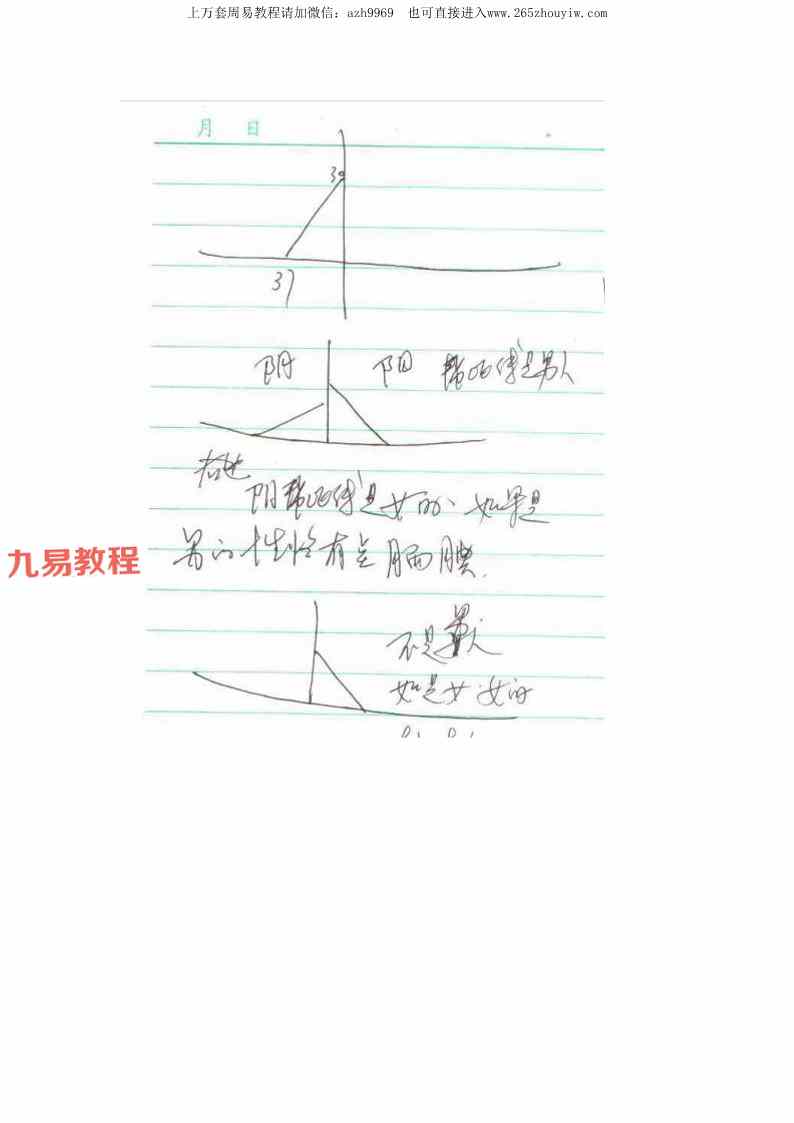 上万套周易教程请加微信: azh9969 也可直接进入www.265zhouyiw.com
月 日
30
37
阴 阳 是男人
阴 是女的、如果是
男的 性格有点腼腆.
九易教程
不是男人
如是女 女的